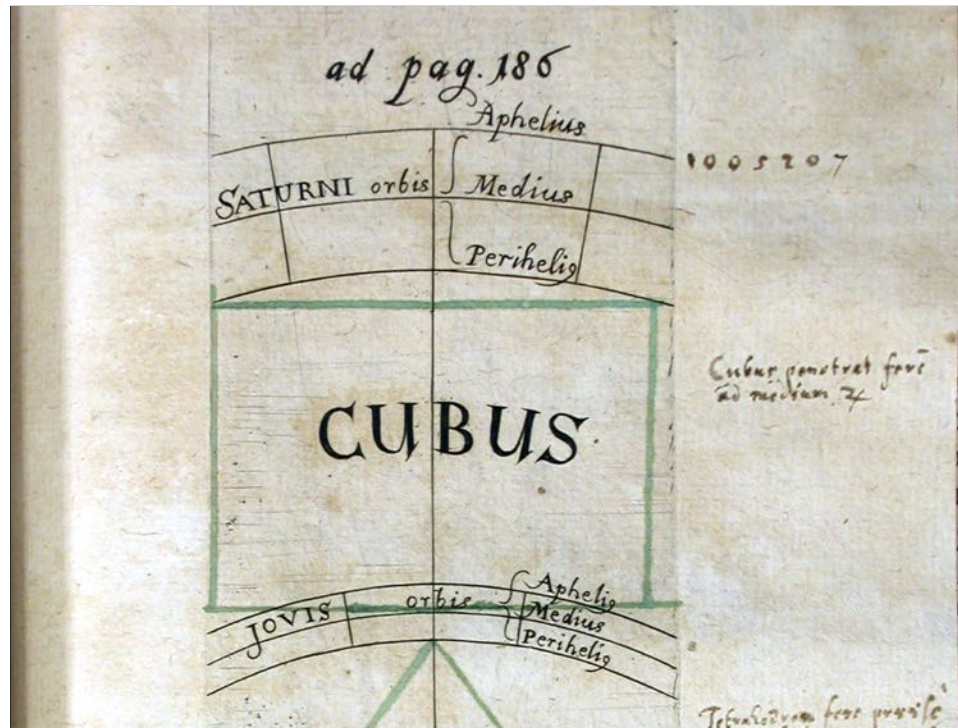 ad pag. 186
Aphelius
SATURNI orbis Medius
Periheliꝰ
1005207
CUBUS
Cubus penetrat fere
ad medium ♃
JOVIS orbis Apheliꝰ
Medius
Periheliꝰ
Tetrahedron fere